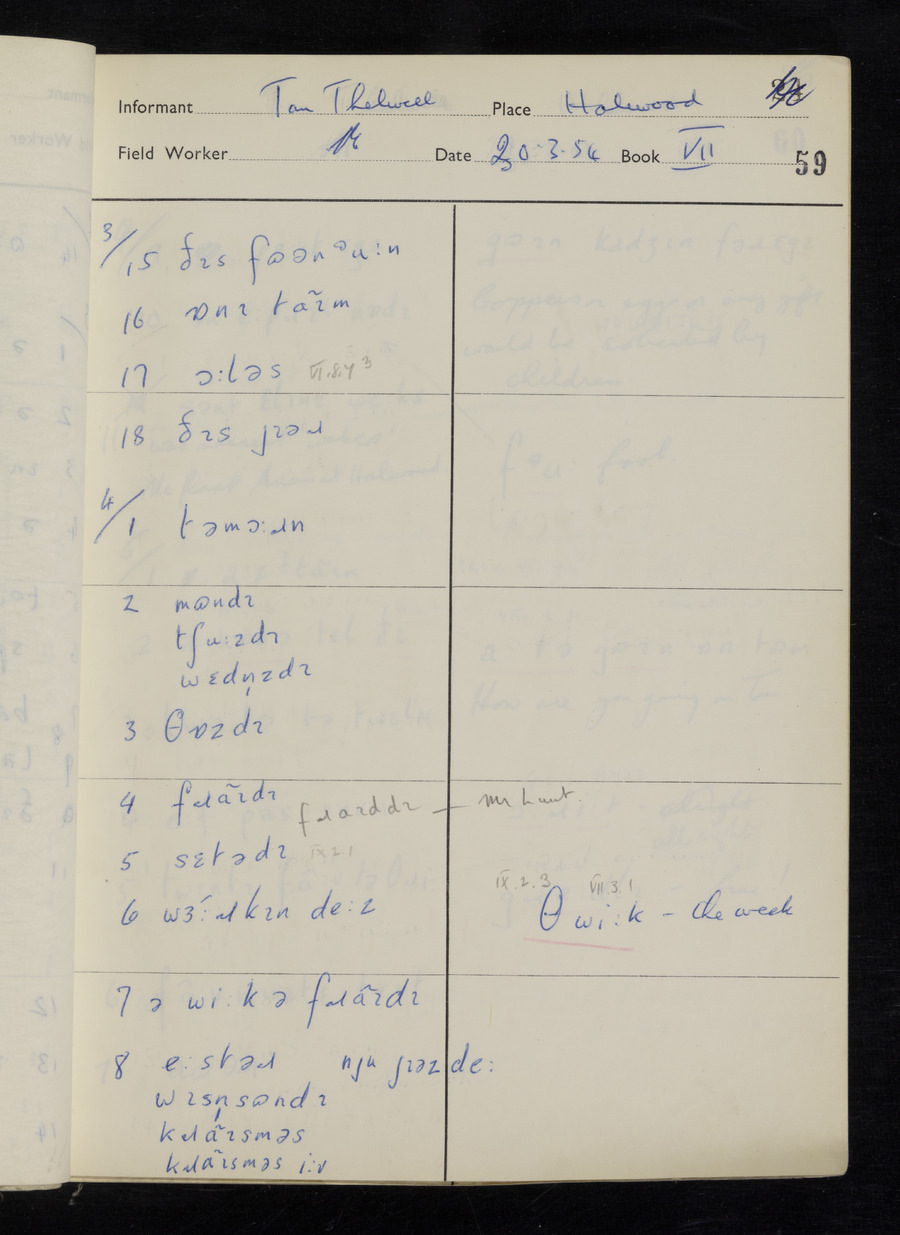 Informant Tom Thelwell Place Halewood
Field Worker Date 20.3.54 Book VII
59
3/15 ðɪs
16 ɒnɪ tãɪm
17 ə:ləs VI.8.4 3
18 ðɪs ȷɪəɹ
4/1 təmɔ:ɹn
2 mɷndɪ
tʃu:zdɪ
wɛdn̩zdɪ
3 θɒzdɪ
4 fɹãɪdɪ
fɹaɪddɪ — Mr Hunt.
5 sɛtədɪ IX.2.1
IX.2.3 VII.3.1
6 wɜ:ɹkɪn de:z θ wi:k - the week
7 ə wi:k ə fɹãɪdɪ
8 e:stəɹ nju ȷɪəz de:
wɪsn̩sɷndɪ
kɹãɪsməs
kɹãɪsməs i:v